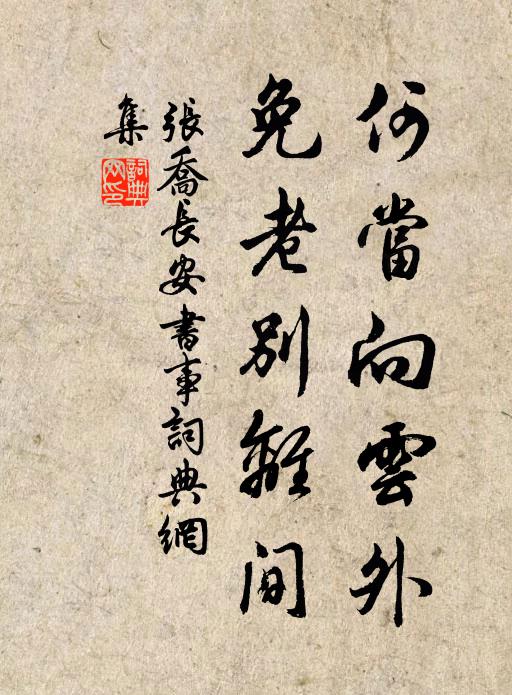 何當向雲外
免老別離間
張喬長安書事詞典網
集
詞典
网印